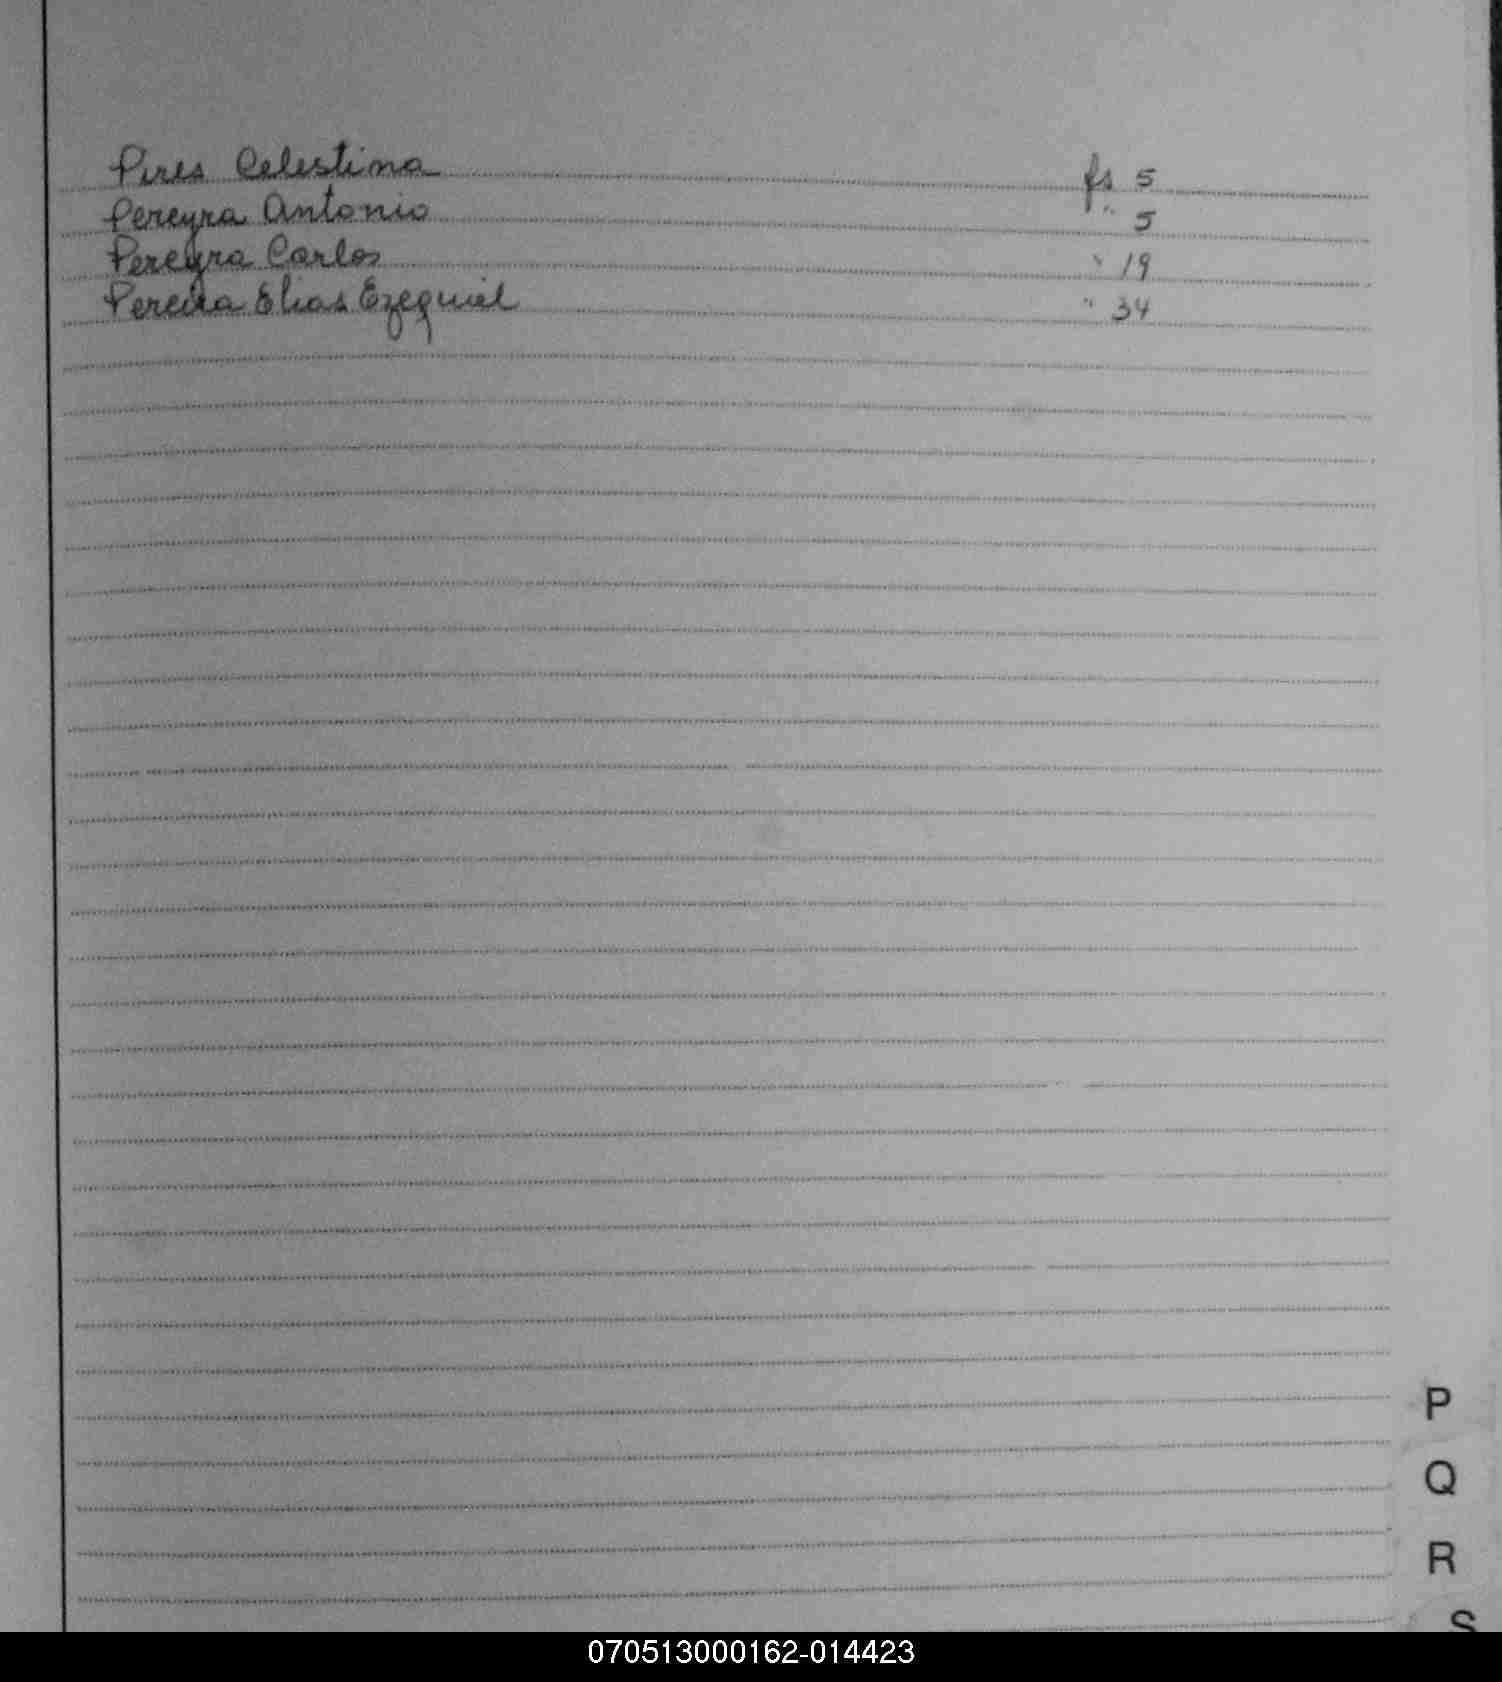 Pires Celestina fs 5
Pereyra Antonio " 5
Pereyra Carlos " 19
Pereira Elias Ezequiel " 34
P
Q
R
S
070513000162-014423